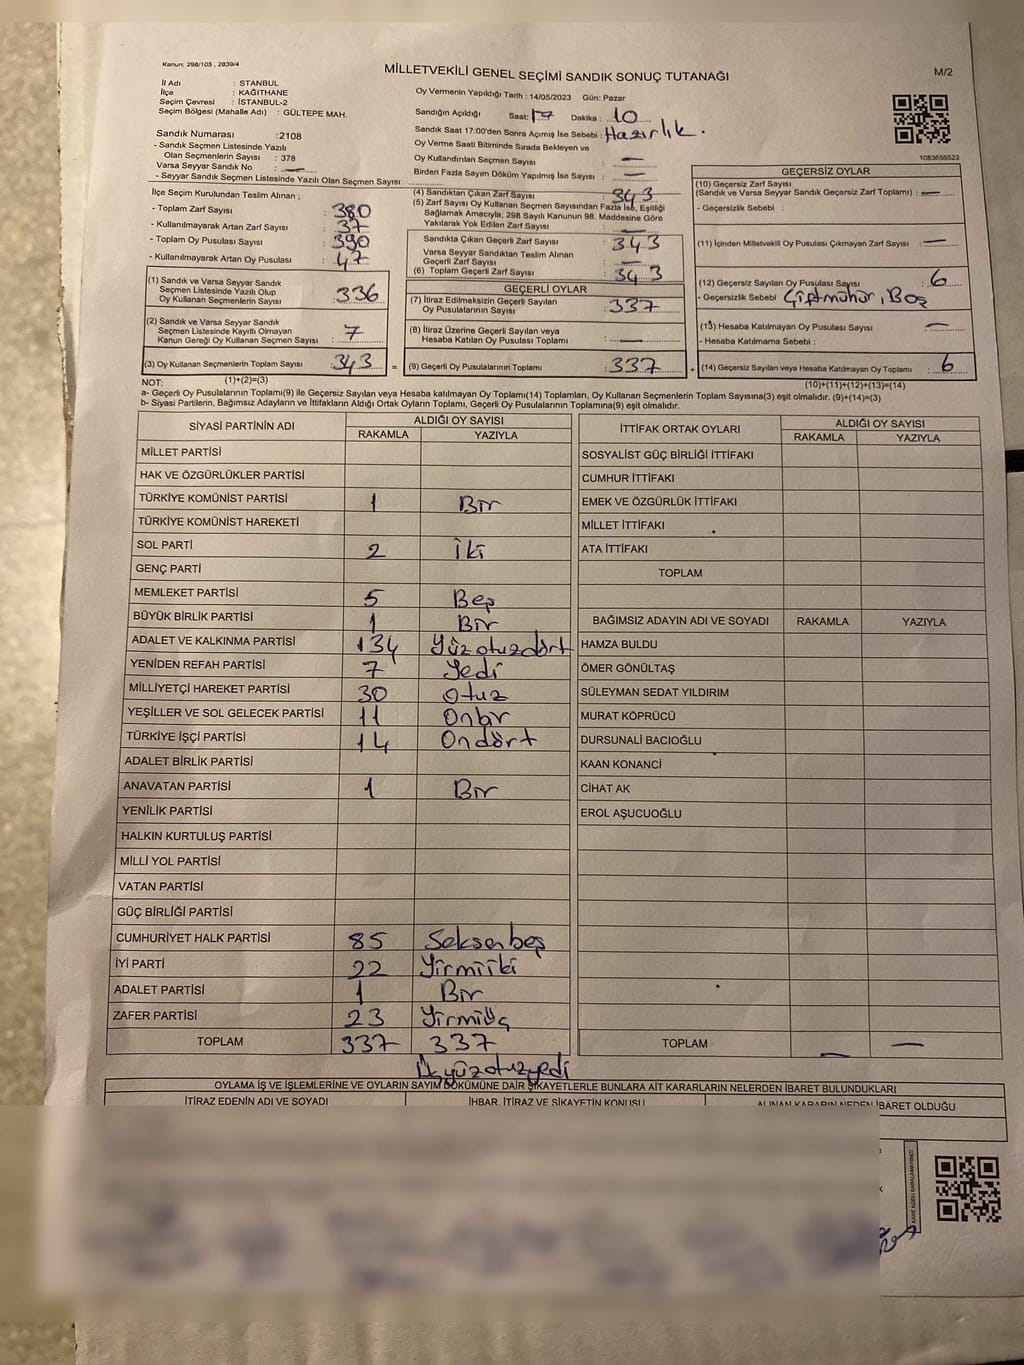 Kanun; 298/105 , 2839/4
MİLLETVEKİLİ GENEL SEÇİMİ SANDIK SONUÇ TUTANAĞI
M/2
İl Adı : STANBUL
İlçe : KAĞITHANE
Seçim Çevresi : İSTANBUL-2
Seçim Bölgesi (Mahalle Adı) : GÜLTEPE MAH.
Sandık Numarası :2108
- Sandık Seçmen Listesinde Yazılı
Olan Seçmenlerin Sayısı : 378
Varsa Seyyar Sandık No : —
- Seyyar Sandık Seçmen Listesinde Yazılı Olan Seçmen Sayısı
Oy Vermenin Yapıldığı Tarih : 14/05/2023 Gün: Pazar
Sandığın Açıldığı Saat: 17 Dakika : 10
Sandık Saat 17:00'den Sonra Açımış İse Sebebi : Hazırlık.
Oy Verme Saati Bitiminde Sırada Bekleyen ve
Oy Kullandırılan Seçmen Sayısı : —
Birden Fazla Sayım Döküm Yapılmış İse Sayısı : —
1083656522
İlçe Seçim Kurulundan Teslim Alınan ;
- Toplam Zarf Sayısı : 380
- Kullanılmayarak Artan Zarf Sayısı : 37
- Toplam Oy Pusulası Sayısı : 390
- Kullanılmayarak Artan Oy Pusulası : 47
(1) Sandık ve Varsa Seyyar Sandık
Seçmen Listesinde Yazılı Olup
Oy Kullanan Seçmenlerin Sayısı : 336
(2) Sandık ve Varsa Seyyar Sandık
Seçmen Listesinde Kayıtlı Olmayan
Kanun Gereği Oy Kullanan Seçmen Sayısı : 7
(3) Oy Kullanan Seçmenlerin Toplam Sayısı : 343 =
(1)+(2)=(3)
(4) Sandıktan Çıkan Zarf Sayısı : 343
(5) Zarf Sayısı Oy Kullanan Seçmen Sayısından Fazla İse, Eşitliği
Sağlamak Amacıyla; 298 Sayılı Kanunun 98. Maddesine Göre
Yakılarak Yok Edilen Zarf Sayısı : —
Sandıkta Çıkan Geçerli Zarf Sayısı : 343
Varsa Seyyar Sandıktan Teslim Alınan
Geçerli Zarf Sayısı : —
(6) Toplam Geçerli Zarf Sayısı : 343
GEÇERLİ OYLAR
(7) İtiraz Edilmeksizin Geçerli Sayılan
Oy Pusulalarının Sayısı : 337
(8) İtiraz Üzerine Geçerli Sayılan veya
Hesaba Katılan Oy Pusulası Toplamı : —
(9) Geçerli Oy Pusulalarının Toplamı : 337 +
GEÇERSİZ OYLAR
(10) Geçersiz Zarf Sayısı
(Sandık ve Varsa Seyyar Sandık Geçersiz Zarf Toplamı) : —
- Geçersizlik Sebebi :
(11) İçinden Milletvekili Oy Pusulası Çıkmayan Zarf Sayısı : —
(12) Geçersiz Sayılan Oy Pusulası Sayısı : 6
- Geçersizlik Sebebi Çiftmühür, Boş
(13) Hesaba Katılmayan Oy Pusulası Sayısı : —
- Hesaba Katılmama Sebebi :
(14) Geçersiz Sayılan veya Hesaba Katılmayan Oy Toplamı : 6
(10)+(11)+(12)+(13)=(14)
NOT:
a- Geçerli Oy Pusulalarının Toplamı(9) ile Geçersiz Sayılan veya Hesaba katılmayan Oy Toplamı(14) Toplamları, Oy Kullanan Seçmenlerin Toplam Sayısına(3) eşit olmalıdır. (9)+(14)=(3)
b- Siyasi Partilerin, Bağımsız Adayların ve İttifakların Aldığı Ortak Oyların Toplamı, Geçerli Oy Pusulalarının Toplamına(9) eşit olmalıdır.
SİYASİ PARTİNİN ADI ALDIĞI OY SAYISI
RAKAMLA YAZIYLA
MİLLET PARTİSİ
HAK VE ÖZGÜRLÜKLER PARTİSİ
TÜRKİYE KOMÜNİST PARTİSİ 1 Bir
TÜRKİYE KOMÜNİST HAREKETİ
SOL PARTİ 2 İki
GENÇ PARTİ
MEMLEKET PARTİSİ 5 Beş
BÜYÜK BİRLİK PARTİSİ 1 Bir
ADALET VE KALKINMA PARTİSİ 134 Yüzotuzdört
YENİDEN REFAH PARTİSİ 7 Yedi
MİLLİYETÇİ HAREKET PARTİSİ 30 Otuz
YEŞİLLER VE SOL GELECEK PARTİSİ 11 Onbir
TÜRKİYE İŞÇİ PARTİSİ 14 Ondört
ADALET BİRLİK PARTİSİ
ANAVATAN PARTİSİ 1 Bir
YENİLİK PARTİSİ
HALKIN KURTULUŞ PARTİSİ
MİLLİ YOL PARTİSİ
VATAN PARTİSİ
GÜÇ BİRLİĞİ PARTİSİ
CUMHURİYET HALK PARTİSİ 85 Seksenbeş
İYİ PARTİ 22 Yirmiiki
ADALET PARTİSİ 1 Bir
ZAFER PARTİSİ 23 Yirmiüç
TOPLAM 337 337
Üçyüzotuzyedi
İTTİFAK ORTAK OYLARI ALDIĞI OY SAYISI
RAKAMLA YAZIYLA
SOSYALİST GÜÇ BİRLİĞİ İTTİFAKI
CUMHUR İTTİFAKI
EMEK VE ÖZGÜRLÜK İTTİFAKI
MİLLET İTTİFAKI
ATA İTTİFAKI
TOPLAM
BAĞIMSIZ ADAYIN ADI VE SOYADI RAKAMLA YAZIYLA
HAMZA BULDU
ÖMER GÖNÜLTAŞ
SÜLEYMAN SEDAT YILDIRIM
MURAT KÖPRÜCÜ
DURSUNALİ BACIOĞLU
KAAN KONANCİ
CİHAT AK
EROL AŞUCUOĞLU
TOPLAM — —
OYLAMA İŞ VE İŞLEMLERİNE VE OYLARIN SAYIM DÖKÜMÜNE DAİR ŞİKAYETLERLE BUNLARA AİT KARARLARIN NELERDEN İBARET BULUNDUKLARI
İTİRAZ EDENİN ADI VE SOYADI İHBAR, İTİRAZ VE ŞİKAYETİN KONUSU ALINAN KARARIN NEDEN İBARET OLDUĞU